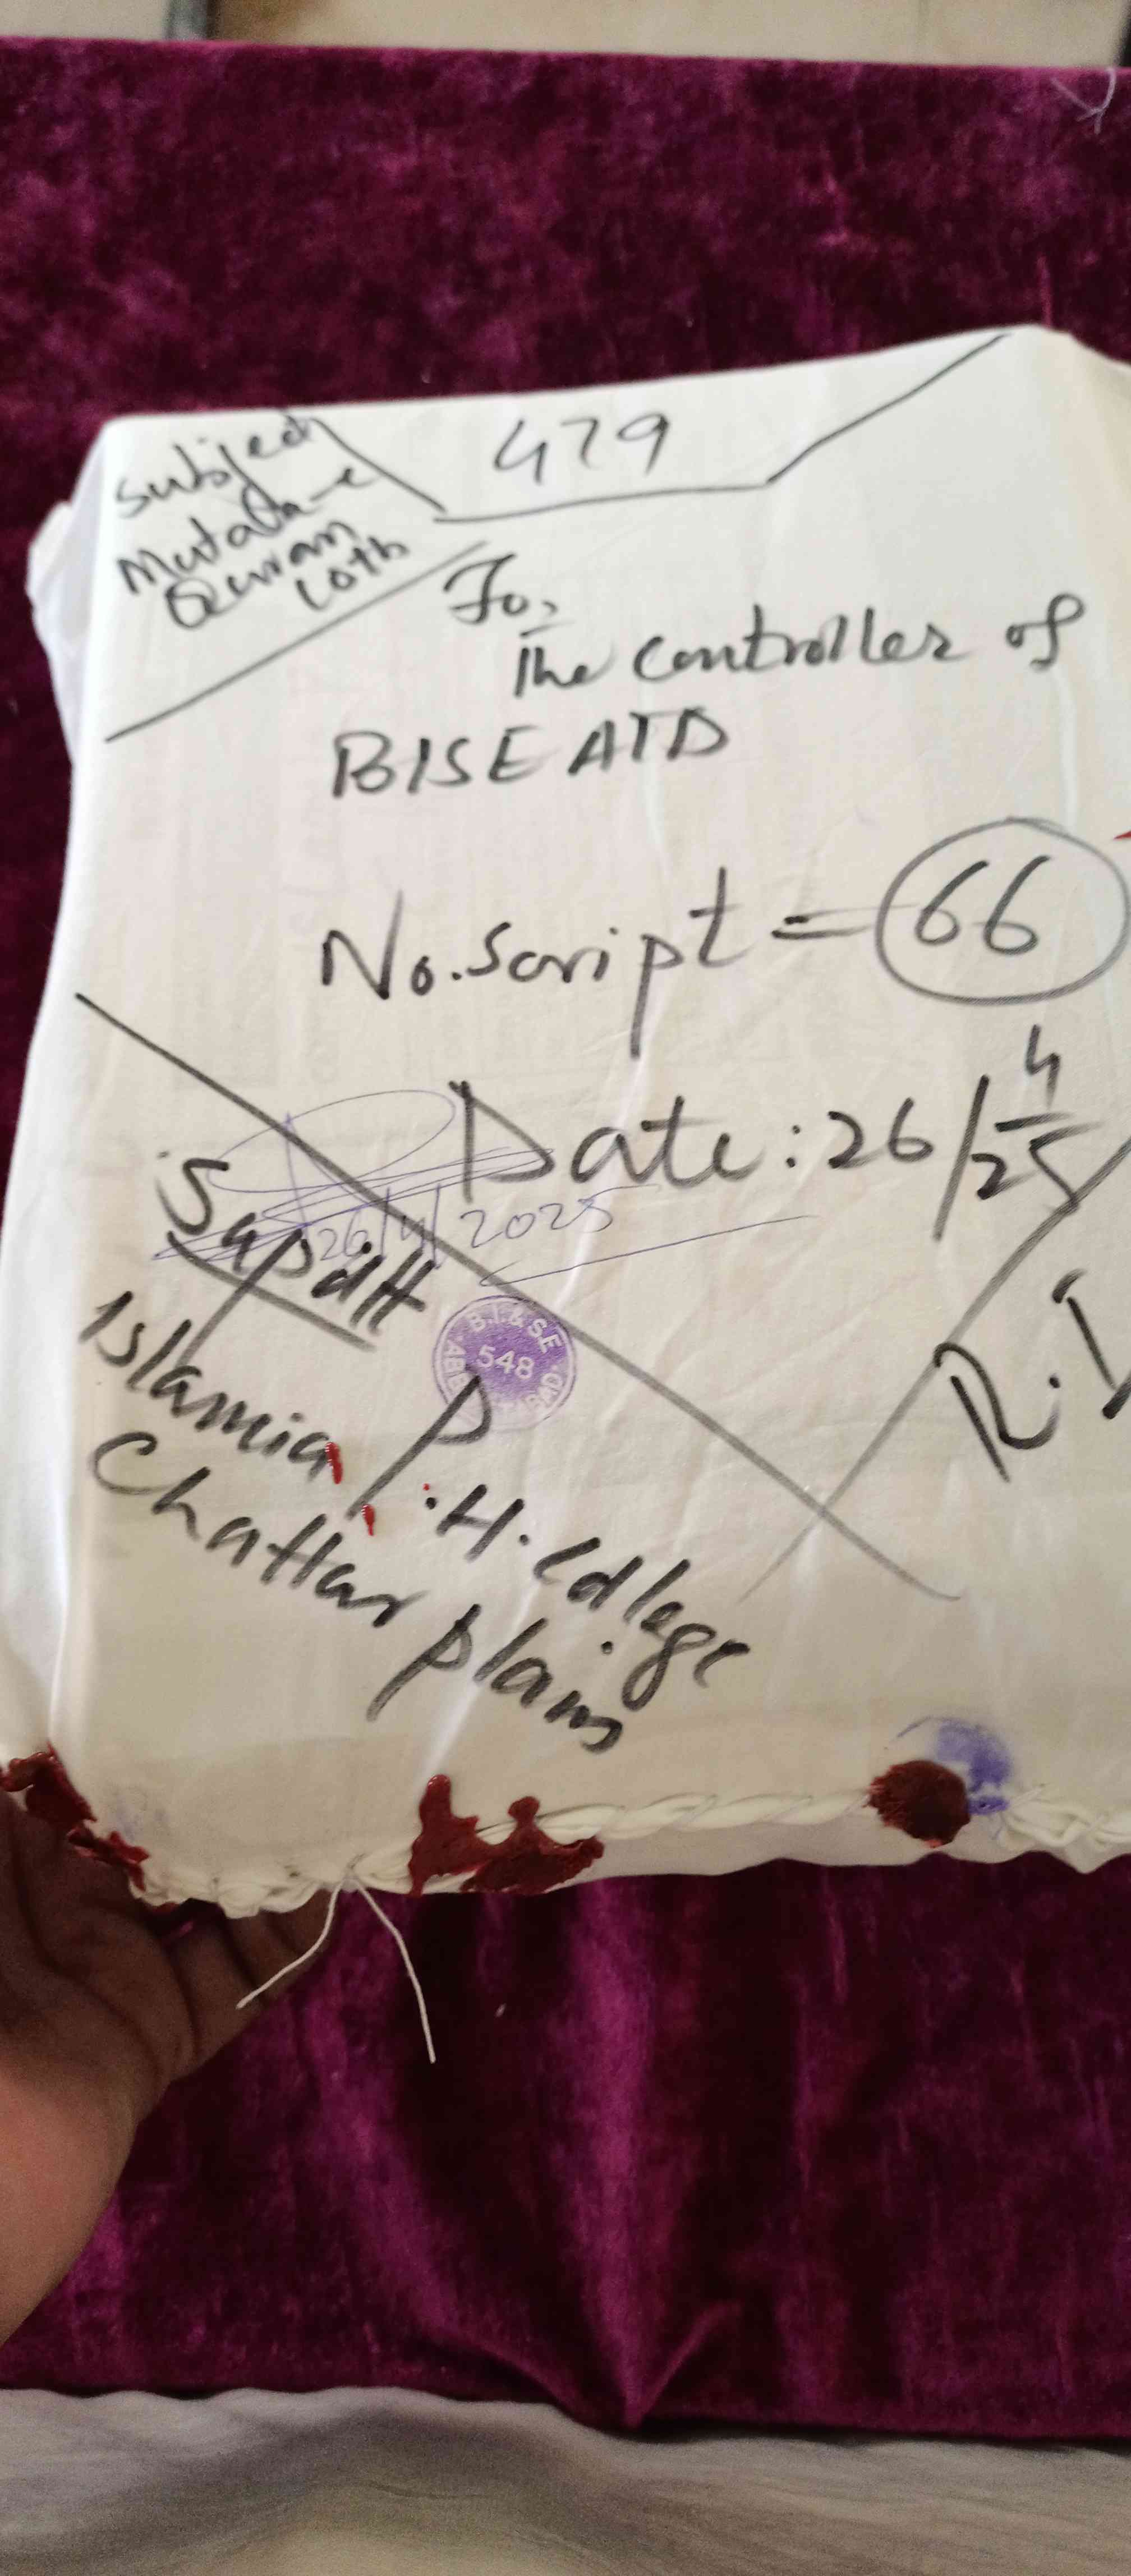 479
Subject
Mutala-e
Quran
10th
To,
The controller of
BISE ATD
No. Script = 66
Date: 26/4/25
26/4/2025
Supdtt
Islamia P.H. College
Chattar plain
B.I.&S.E
548
R.I